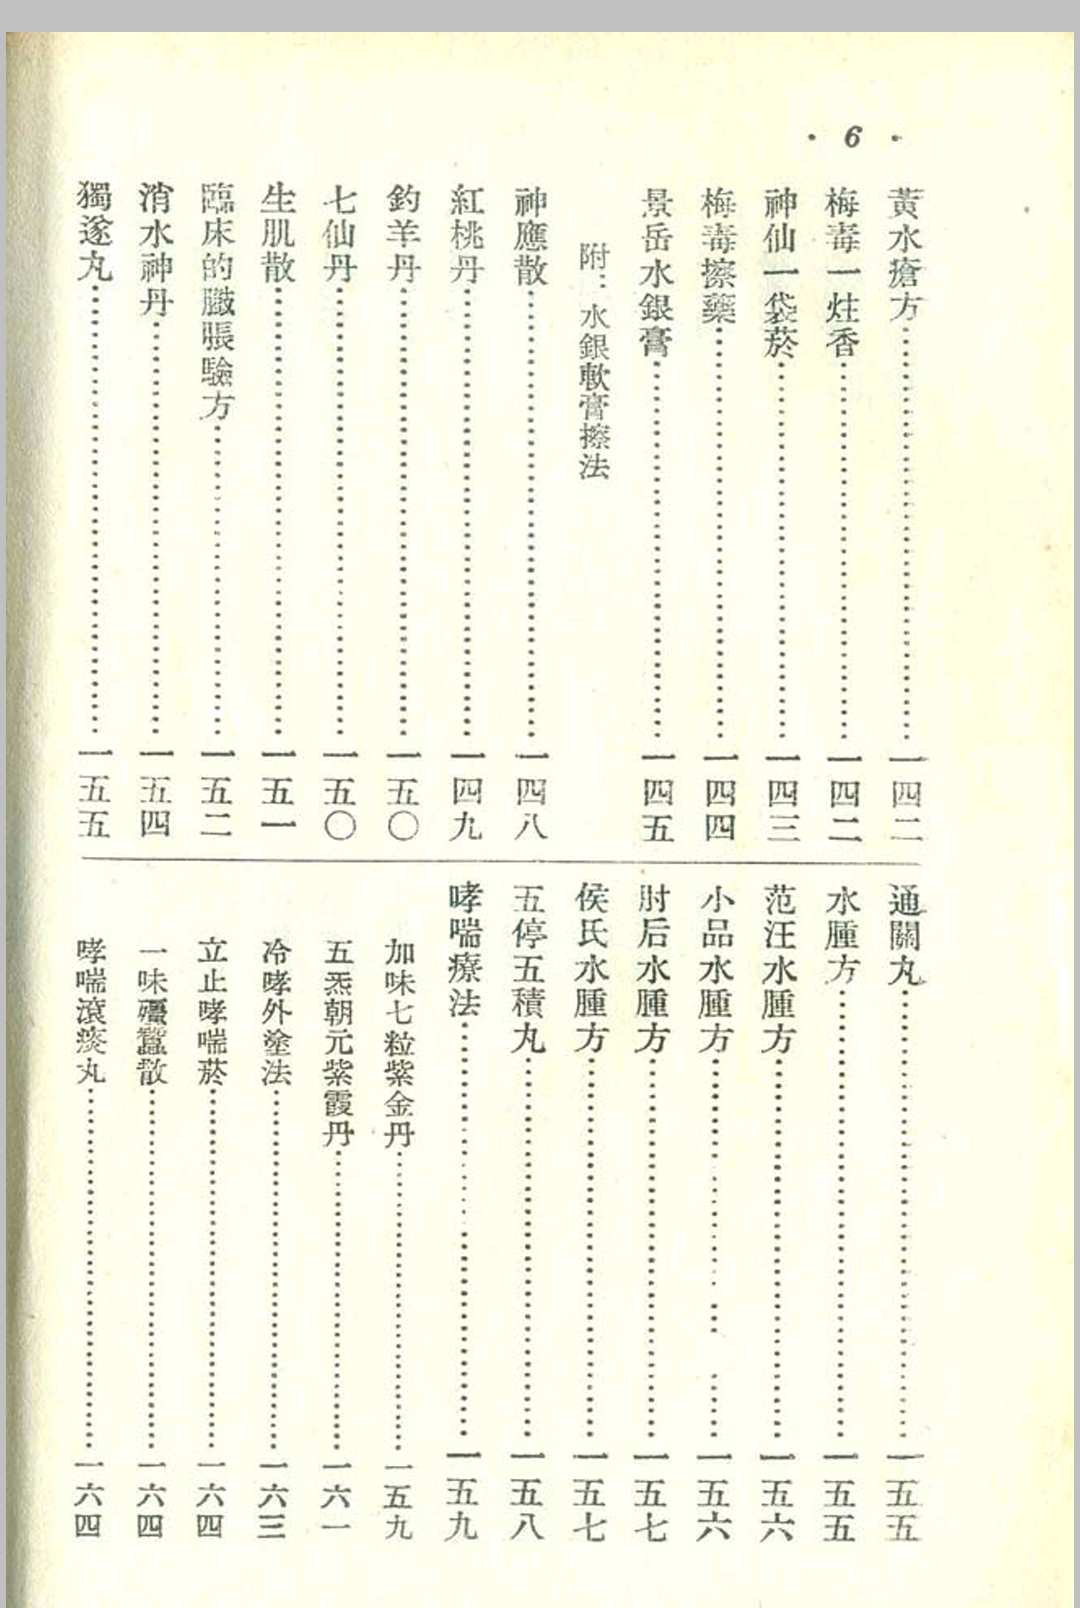 · 6 ·
黃水瘡方……一四二
梅毒一炷香……一四二
神仙一袋菸……一四三
梅毒擦藥……一四四
景岳水銀膏……一四五
附：水銀軟膏擦法
神應散……一四八
紅桃丹……一四九
釣羊丹……一五〇
七仙丹……一五〇
生肌散……一五一
臨床的臌脹驗方……一五二
消水神丹……一五四
獨遂丸……一五五
通關丸……一五五
水腫方……一五五
范汪水腫方……一五六
小品水腫方……一五六
肘后水腫方……一五七
侯氏水腫方……一五七
五停五積丸……一五八
哮喘療法……一五九
加味七粒紫金丹……一五九
五炁朝元紫霞丹……一六一
冷哮外塗法……一六三
立止哮喘菸……一六四
一味殭蠶散……一六四
哮喘滾痰丸……一六四